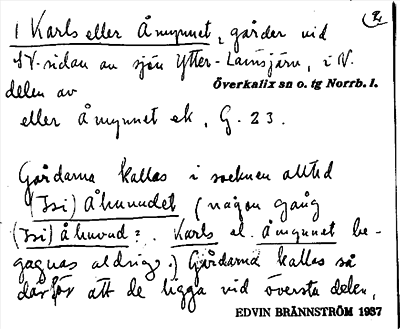 1 Karls eller Åmynnet, gårder vid (R,
N.sidan av sjön Ytter-Lansjärv, i N.
delen av Överkalix sn o. tg Norrb. l.
eller Åmynnet ek, G. 23.
Gårdarna kallas i socknen alltid
(Isi) Åhuvudet (någon gång
(Isi) åhuvud? . Karls el. åmynnet be-
gagnas aldrig.) Gårdarna kallas så
därför att de ligga vid översta delen,
EDVIN BRÄNNSTRÖM 1937